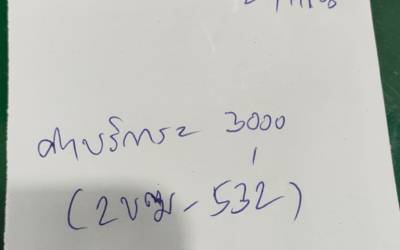 ค่าบริการ 3000
(2ขฆ-532)